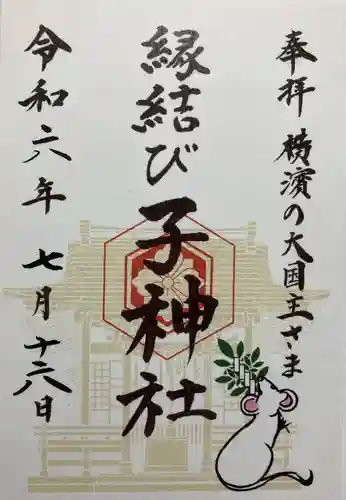 奉拝 横濱の大国主さま
縁結び子神社
令和六年七月十六日